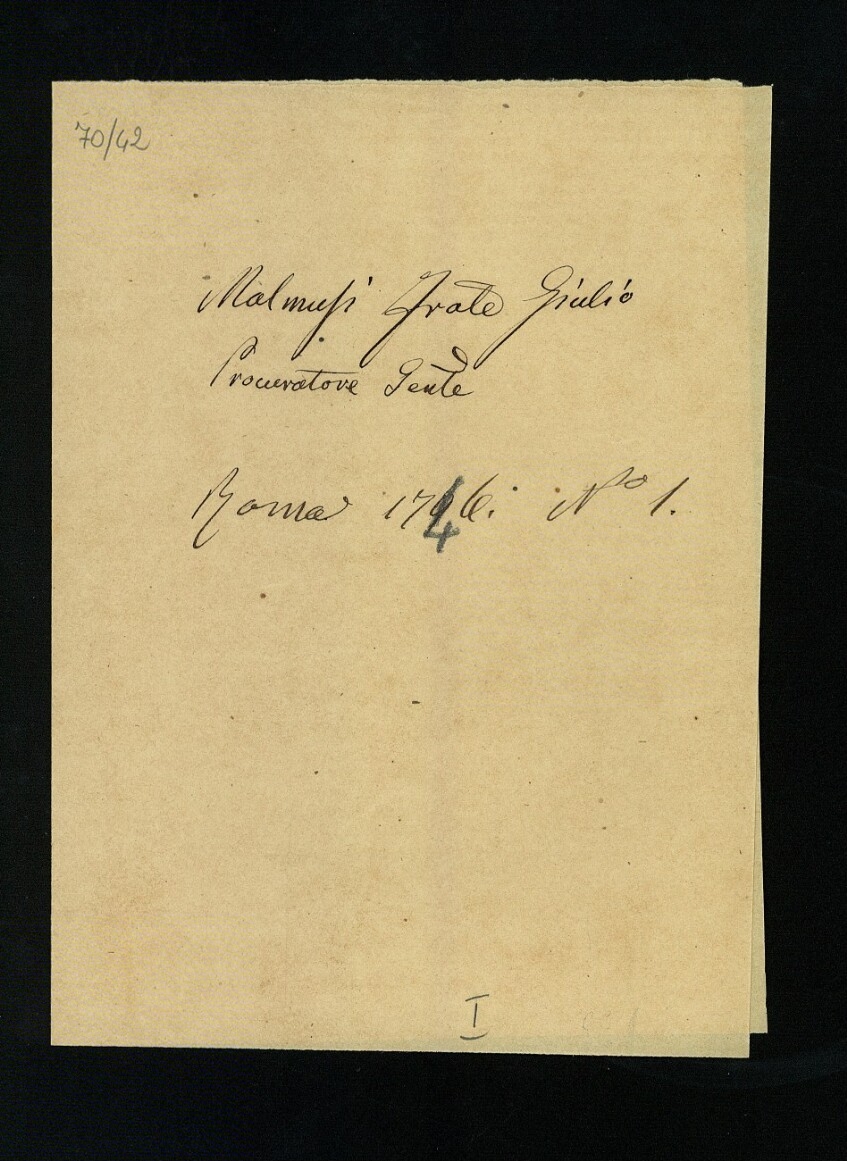 70/42
Malmusi Frate Giulio
Procuratore Genle
Roma 1746. No 1.
I